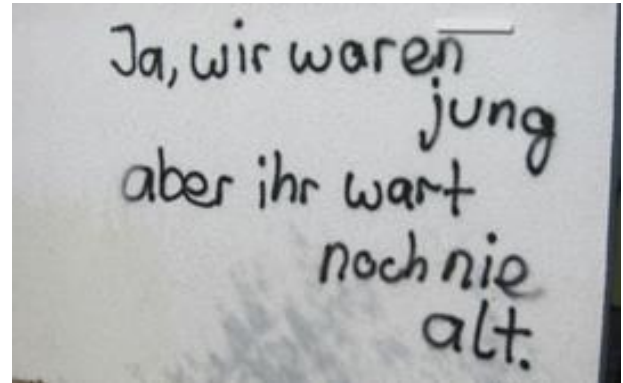 Ja, wir waren
jung
aber ihr wart
noch nie
alt.